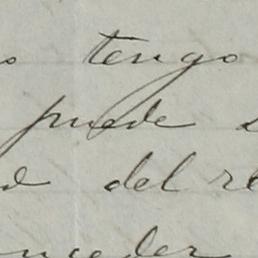 o tengo
puede
del re
nceder